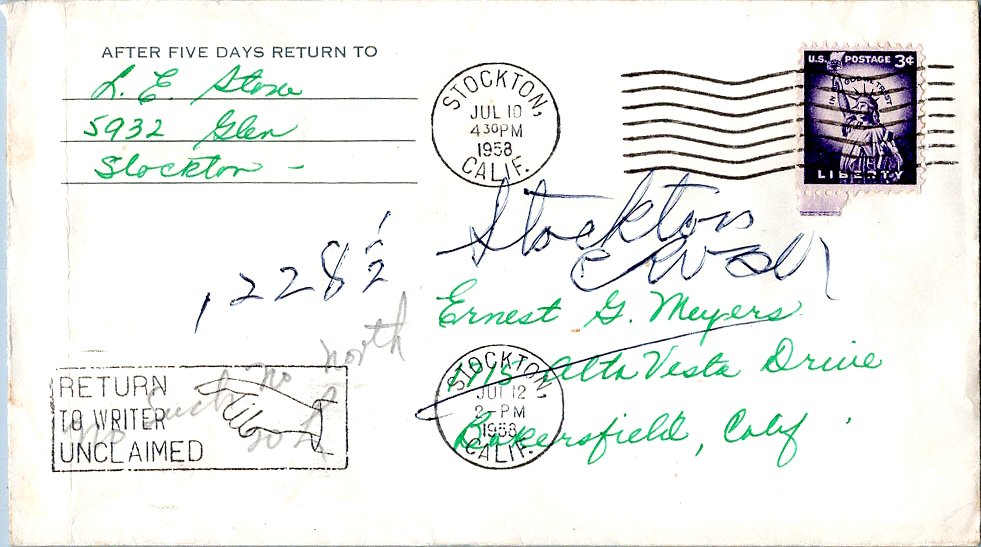 AFTER FIVE DAYS RETURN TO
L. E. Stone
5932 Glen
Stockton -
STOCKTON,
JUL 10
4 30 PM
1958
CALIF.
U.S. POSTAGE 3¢
IN GOD WE TRUST
LIBERTY
Stockton
1228 1/2
Ernest G. Meyers
1915 Alta Vista Drive
Bakersfield, Calif
STOCKTON,
JUL 12
2 - PM
1958
CALIF.
RETURN
TO WRITER
UNCLAIMED
no such no north